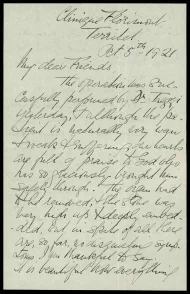 Clinique Florimont
Territet
Oct 5th 1921
My dear Friends
The operation was suc-
cessfully performed by Dr
yesterday. & although the pa-
tient is naturally very worn
& weak & suffering, our hearts
are full of praise to God who
has so graciously brought him
safely through. The organ had
to be removed. The stone was
very high up & deeply embed-
ded, but in spite of all there
are, so far, no distressful symp-
toms I am thankful to say.
It is beautiful how everything